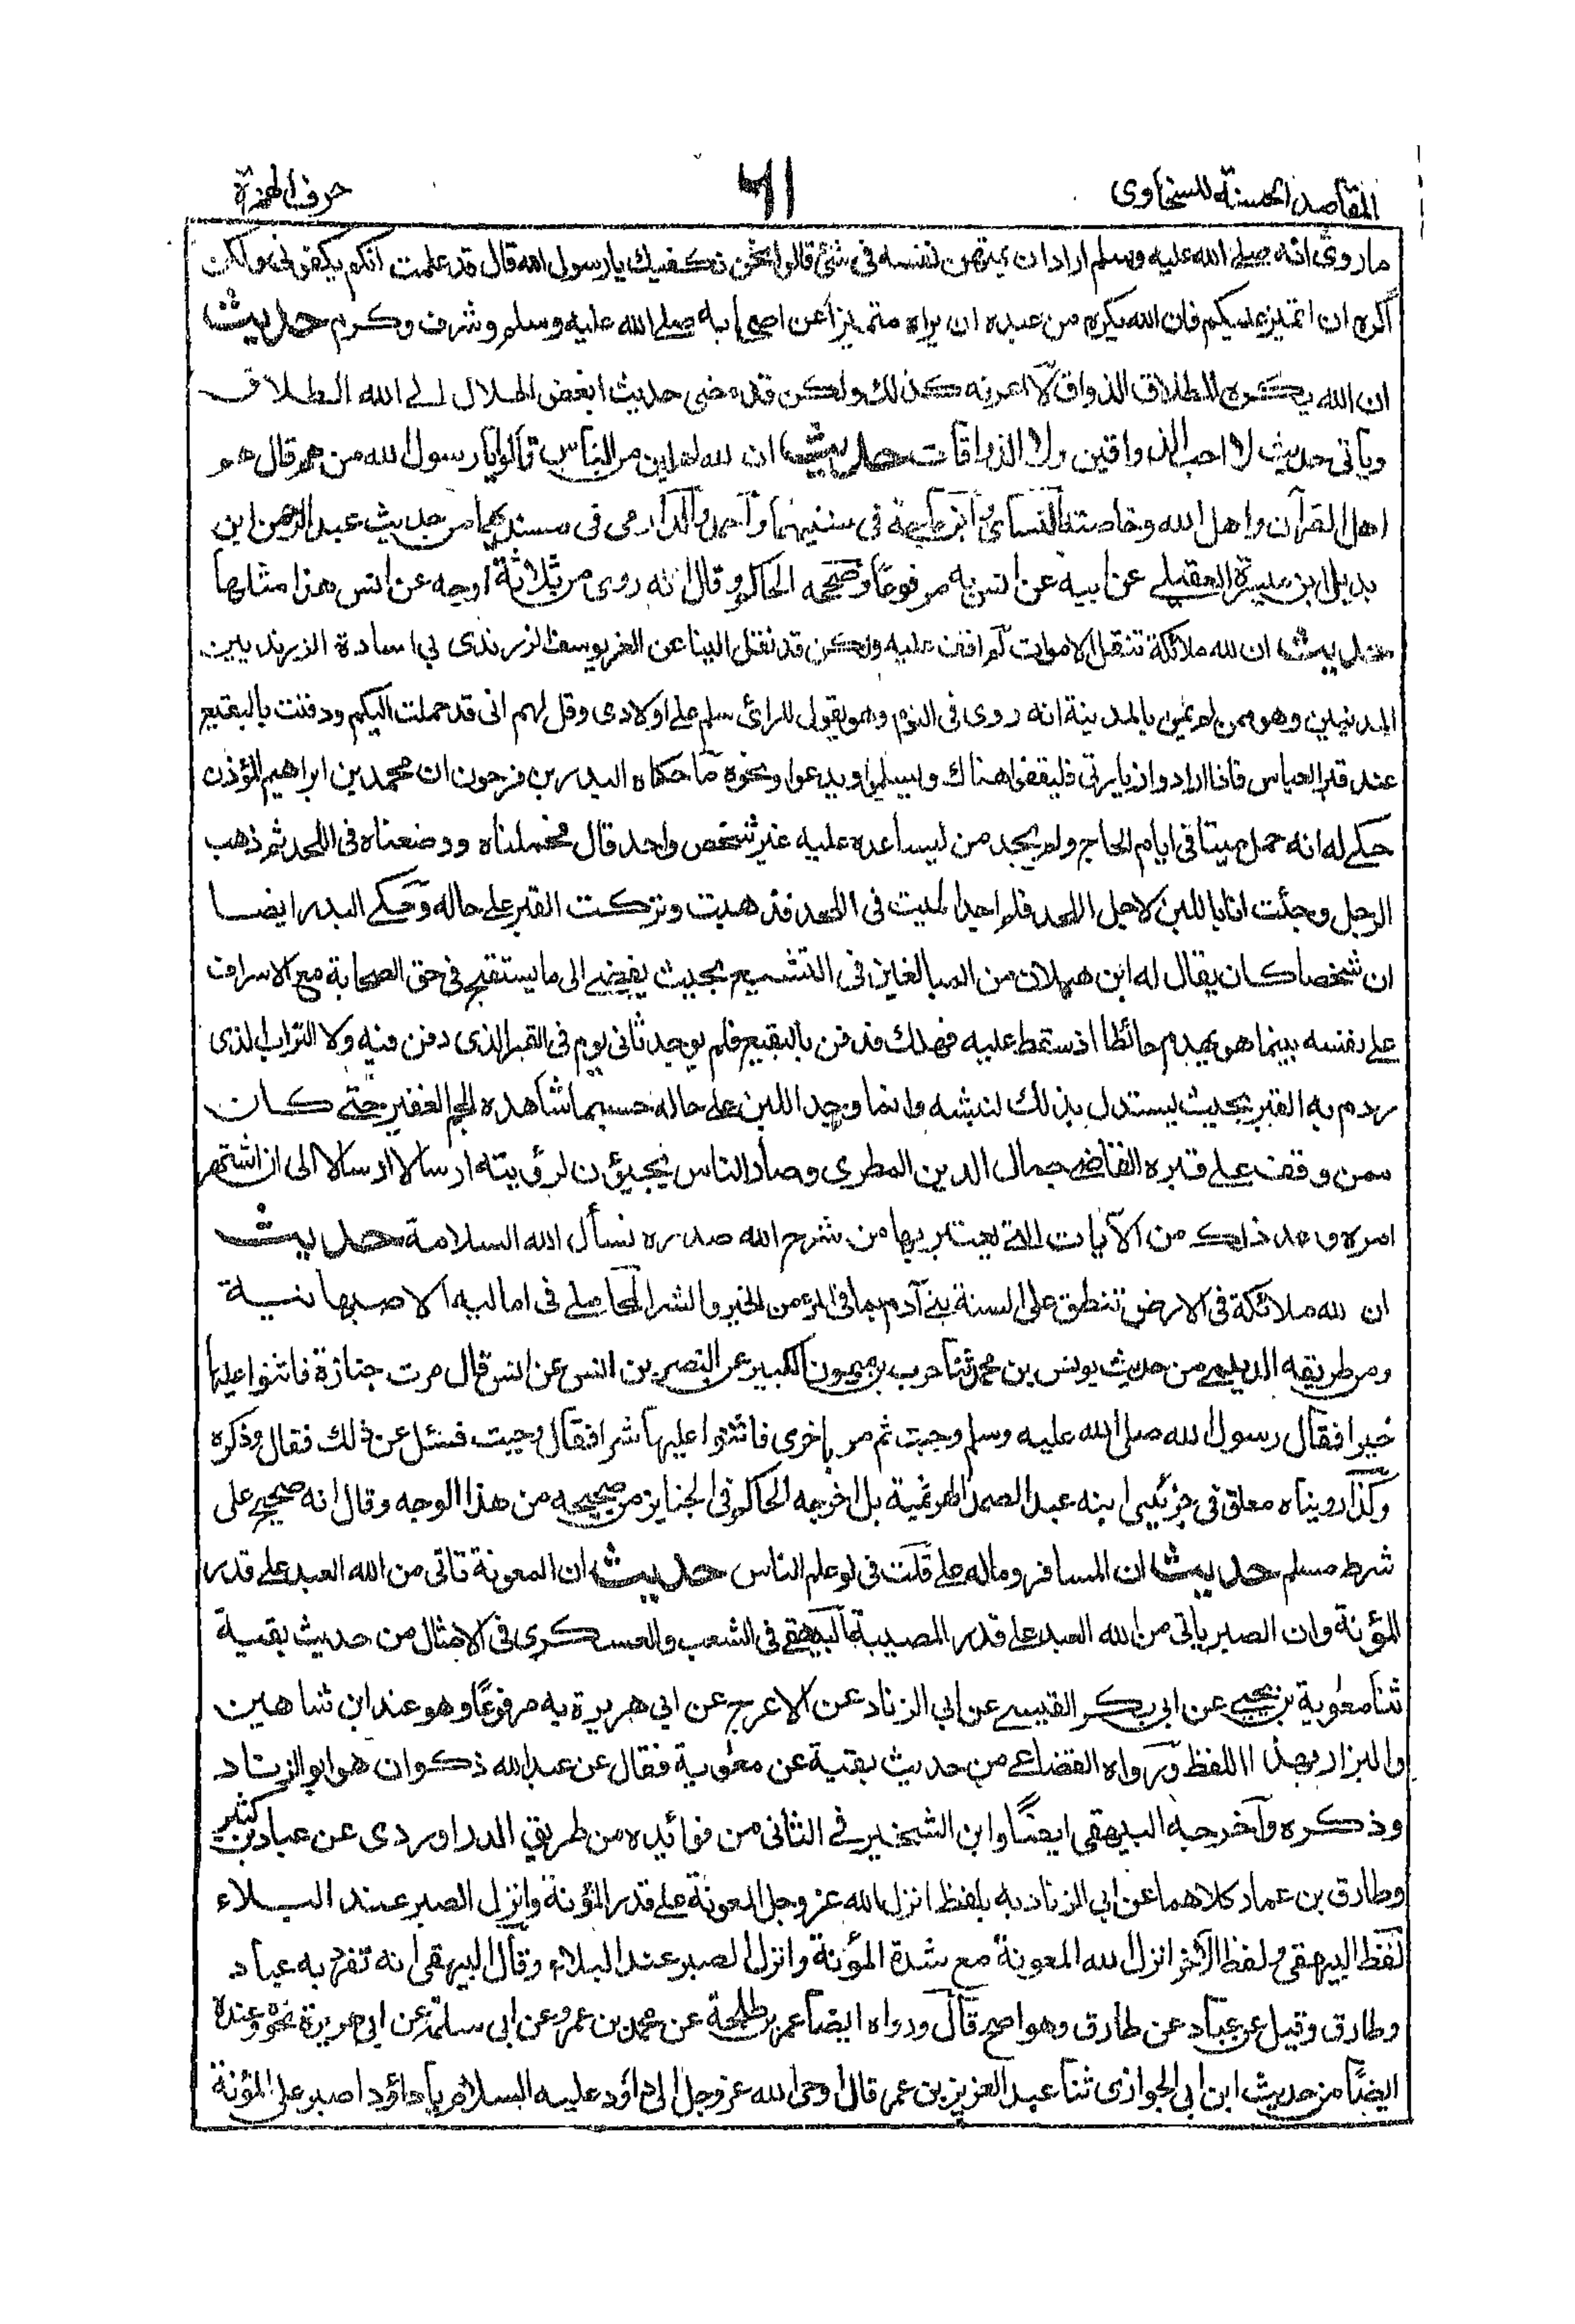 المقاصد الحسنة للسخاوى
٦١
حرف الهمزة
ما روى انه صلى الله عليه وسلم اراد ان يمتهن نفسه فى شئ قالوا نحن نكفيك يا رسول الله قال قد علمت انكم تكفونى ولكن
اكره ان اتميز عليكم فان الله يكره من عبده ان يراه متميزا عن اصحابه صلى الله عليه وسلم وشرف وكرم حديث
ان الله يكره المطلاق الذواق لا اعرفه كذلك ولكن قد مضى حديث ابغض الحلال الى الله الطلاق
وياتى حديث لا احب الذواقين ولا الذواقات حديث ان لله اهلين من الناس قالوا يا رسول الله من هم قال هم
اهل القرآن واهل الله وخاصته النسائى وابن ماجة فى سننيهما واحمد والدارمى فى مسنديهما من حديث عبد الرحمن ابن
بديل ابن ميسرة العقيلى عن ابيه عن انس به مرفوعًا وصححه الحاكم وقال انه روى من ثلاثة اوجه عن انس هذا امثلها
حديث ان لله ملائكة تنقل الاموات لم اقف عليه ولكن قد نقل الينا عن العز يوسف الزرندى ابى السادة الزرنديين
المدنيين وهو ممن لم يمت بالمدينة انه روى فى النوم وهو يقول للرائى سلم على اولادى وقل لهم انى قد حملت اليكم ودفنت بالبقيع
عند قبر العباس فاذا ارادوا زيارتى فليقفوا هناك وليسلموا ويدعوا ونحوه ما حكاه البدر بن فرحون ان محمد بن ابراهيم المؤذن
حكى له انه حمل ميتا فى ايام الحاج ولم يجد من يساعده عليه غير شخص واحد قال فحملناه ووضعناه فى اللحد ثم ذهب
الرجل وجئت انا باللبن لاجل اللحد فلم اجد الميت فى اللحد فذهبت وتركت القبر على حاله وحكى البدر ايضا
ان شخصا كان يقال له ابن هيلان من المبالغين فى التشيع بحيث يفضى الى ما يستقبح فى حق الصحابة مع الاسراف
على نفسه بينما هو يهدم حائطا اذ سقط عليه فهلك فدفن بالبقيع فلم يوجد ثانى يوم فى القبر الذى دفن فيه ولا التراب الذى
ردم به القبر بحيث يستدل بذلك لنبشه وانما وجد اللبن على حاله حسبما شاهده الجم الغفير حتى كان
ممن وقف على قبره القاضى جمال الدين المطرى وصار الناس يجيؤن لرؤيته ارسالا ارسالا الى ان اشتهر
امره وعد ذلك من الآيات التى يعتبر بها من شرح الله صدره نسأل الله السلامة حديث
ان لله ملائكة فى الارض تنطق على السنة بنى آدم بما فى المرء من الخير والشر الحاملى فى اماليه الاصبهانية
ومن طريقه الديلمى من حديث يونس بن محمد ثنا حرب بن ميمون الكبير عن النضر بن انس عن انس قال مرت جنازة فاثنوا عليها
خيرا فقال رسول الله صلى الله عليه وسلم وجبت ثم مر باخرى فاثنوا عليها شرا فقال وجبت فسئل عن ذلك فقال وذكره
وكذا رويناه معلق فى جزئيى ابنه عبد الصمد الهرثمية بل اخرجه الحاكم فى الجنايز من صحيحه من هذا الوجه وقال انه صحيح على
شرط مسلم حديث ان المسافر وماله على قلت فى لو علم الناس حديث ان المعونة تاتى من الله العبد على قدر
المؤنة وان الصبر ياتى من الله العبد على قدر المصيبة البيهقى فى الشعب والعسكرى فى الامثال من حديث بقية
ثنا معوية بن يحيى عن ابى بكر القيسى عن ابى الزناد عن الاعرج عن ابى هريرة به مرفوعًا وهو عند ابن شاهين
والبزار بهذا اللفظ ورواه القضاعى من حديث بقية عن معوية فقال عن عبد الله ذكوان هو ابو الزناد
وذكره واخرجه البيهقى ايضًا وابن الشخير فى الثانى من فوائده من طريق الدراوردى عن عباد بن كثير
وطارق بن عمار كلاهما عن ابى الزناد به بلفظ انزل الله عز وجل المعونة على قدر المؤنة وانزل الصبر عند البلاء
لفظ البيهقى ولفظ الآخر انزل الله المعونة مع شدة المؤنة وانزل الصبر عند البلاء وقال البيهقى انه تفرد به عباد
وطارق وقيل عن عباد عن طارق وهو اصح قال ورواه ايضا عمر بن طلحة عن محمد بن عمرو عن ابى سلمة عن ابى هريرة نحوه وعنده
ايضًا من حديث ابن ابى الحوارى ثنا عبد العزيز بن عمر قال اوحى الله عز وجل الى داؤد عليه السلام يا داؤد اصبر على المؤنة